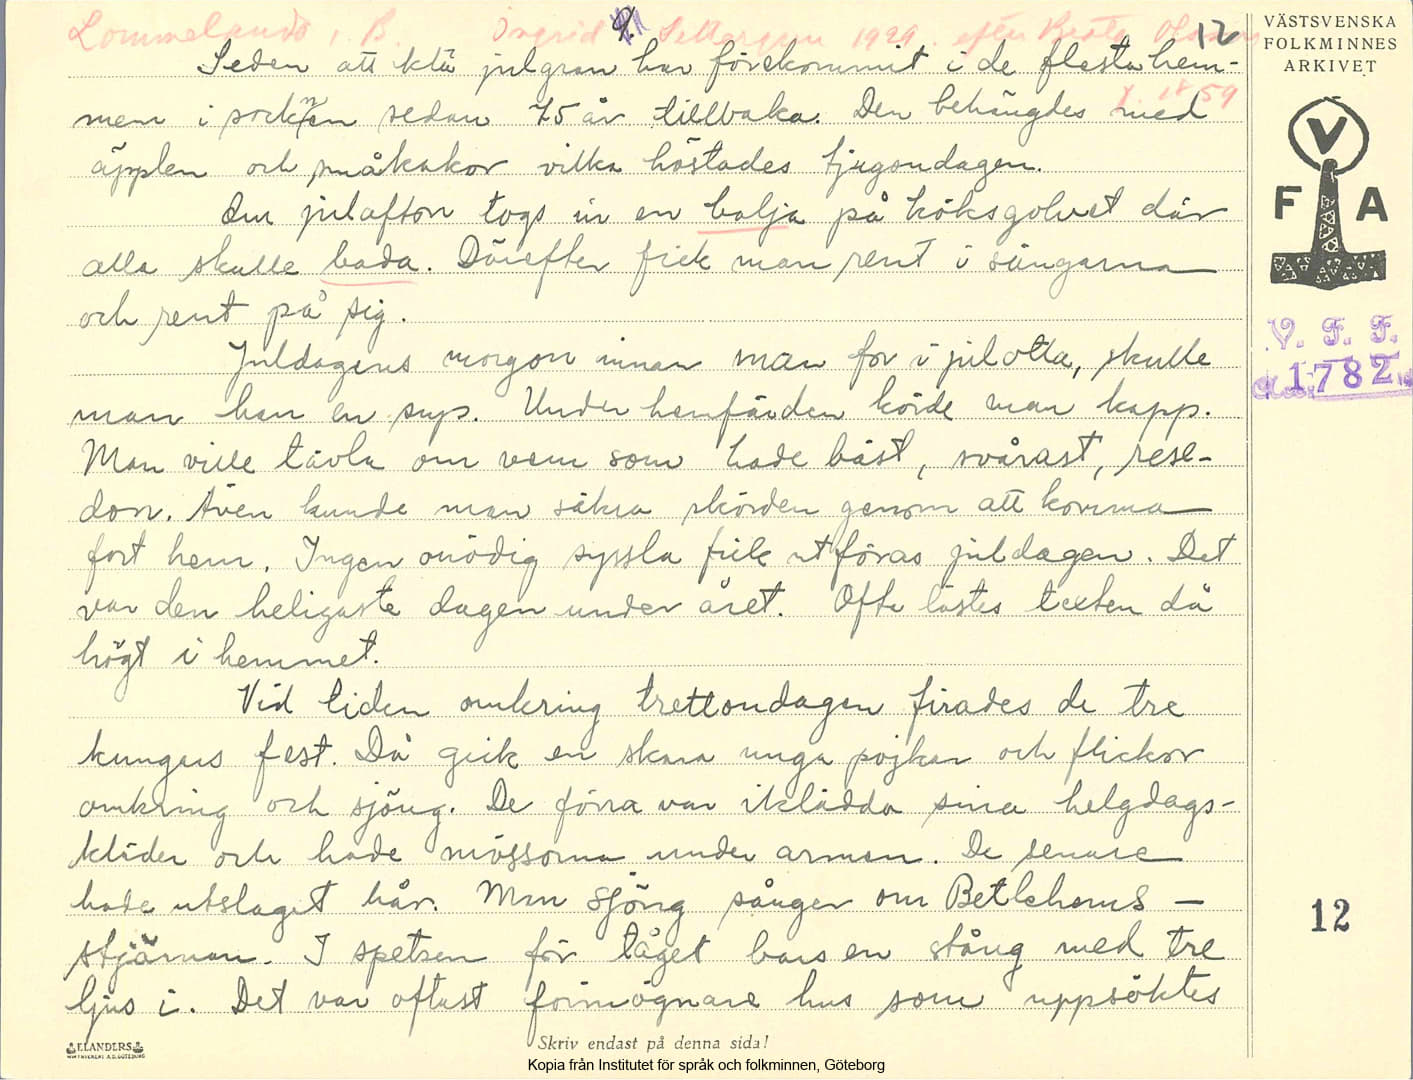 Lommelands, B. Ingrid Settergren 1929 efter Beata Olsson
12
VÄSTSVENSKA
FOLKMINNES
ARKIVET
Seden att klä julgran har förekommit i de flesta hem-
men i socknen sedan 75 år tillbaka. Den behängdes med
äpplen och småkakor vilka höstades tjugondagen.
Om julafton togs in en balja på köksgolvet där
alla skulle bada. Därefter fick man rent i sängarna
och rent på sig.
Juldagens morgon innan man for i julotta, skulle
man han en sup. Under hemfärden körde man kapp.
Man ville tävla om vem som hade bäst, svårast, rese-
don. Även kunde man säkra skörden genom att komma
fort hem. Ingen onödig syssla fick utföras juldagen. Det
var den heligaste dagen under året. Ofta lästes texten då
högt i hemmet.
Vid tiden omkring trettondagen firades de tre
kungars fest. Då gick en skara unga pojkar och flickor
omkring och sjöng. De förra var iklädda sina helgdags-
kläder och hade mössorna under armen. De senare
hade utslaget hår. Man sjöng sånger om Betlehems-
stjärnan. I spetsen för tåget bars en stång med tre
ljus i. Det var oftast förmögnare hus som uppsöktes
V
F A
V. F. F.
1782
12
ELANDERS
Skriv endast på denna sida!
Kopia från Institutet för språk och folkminnen, Göteborg